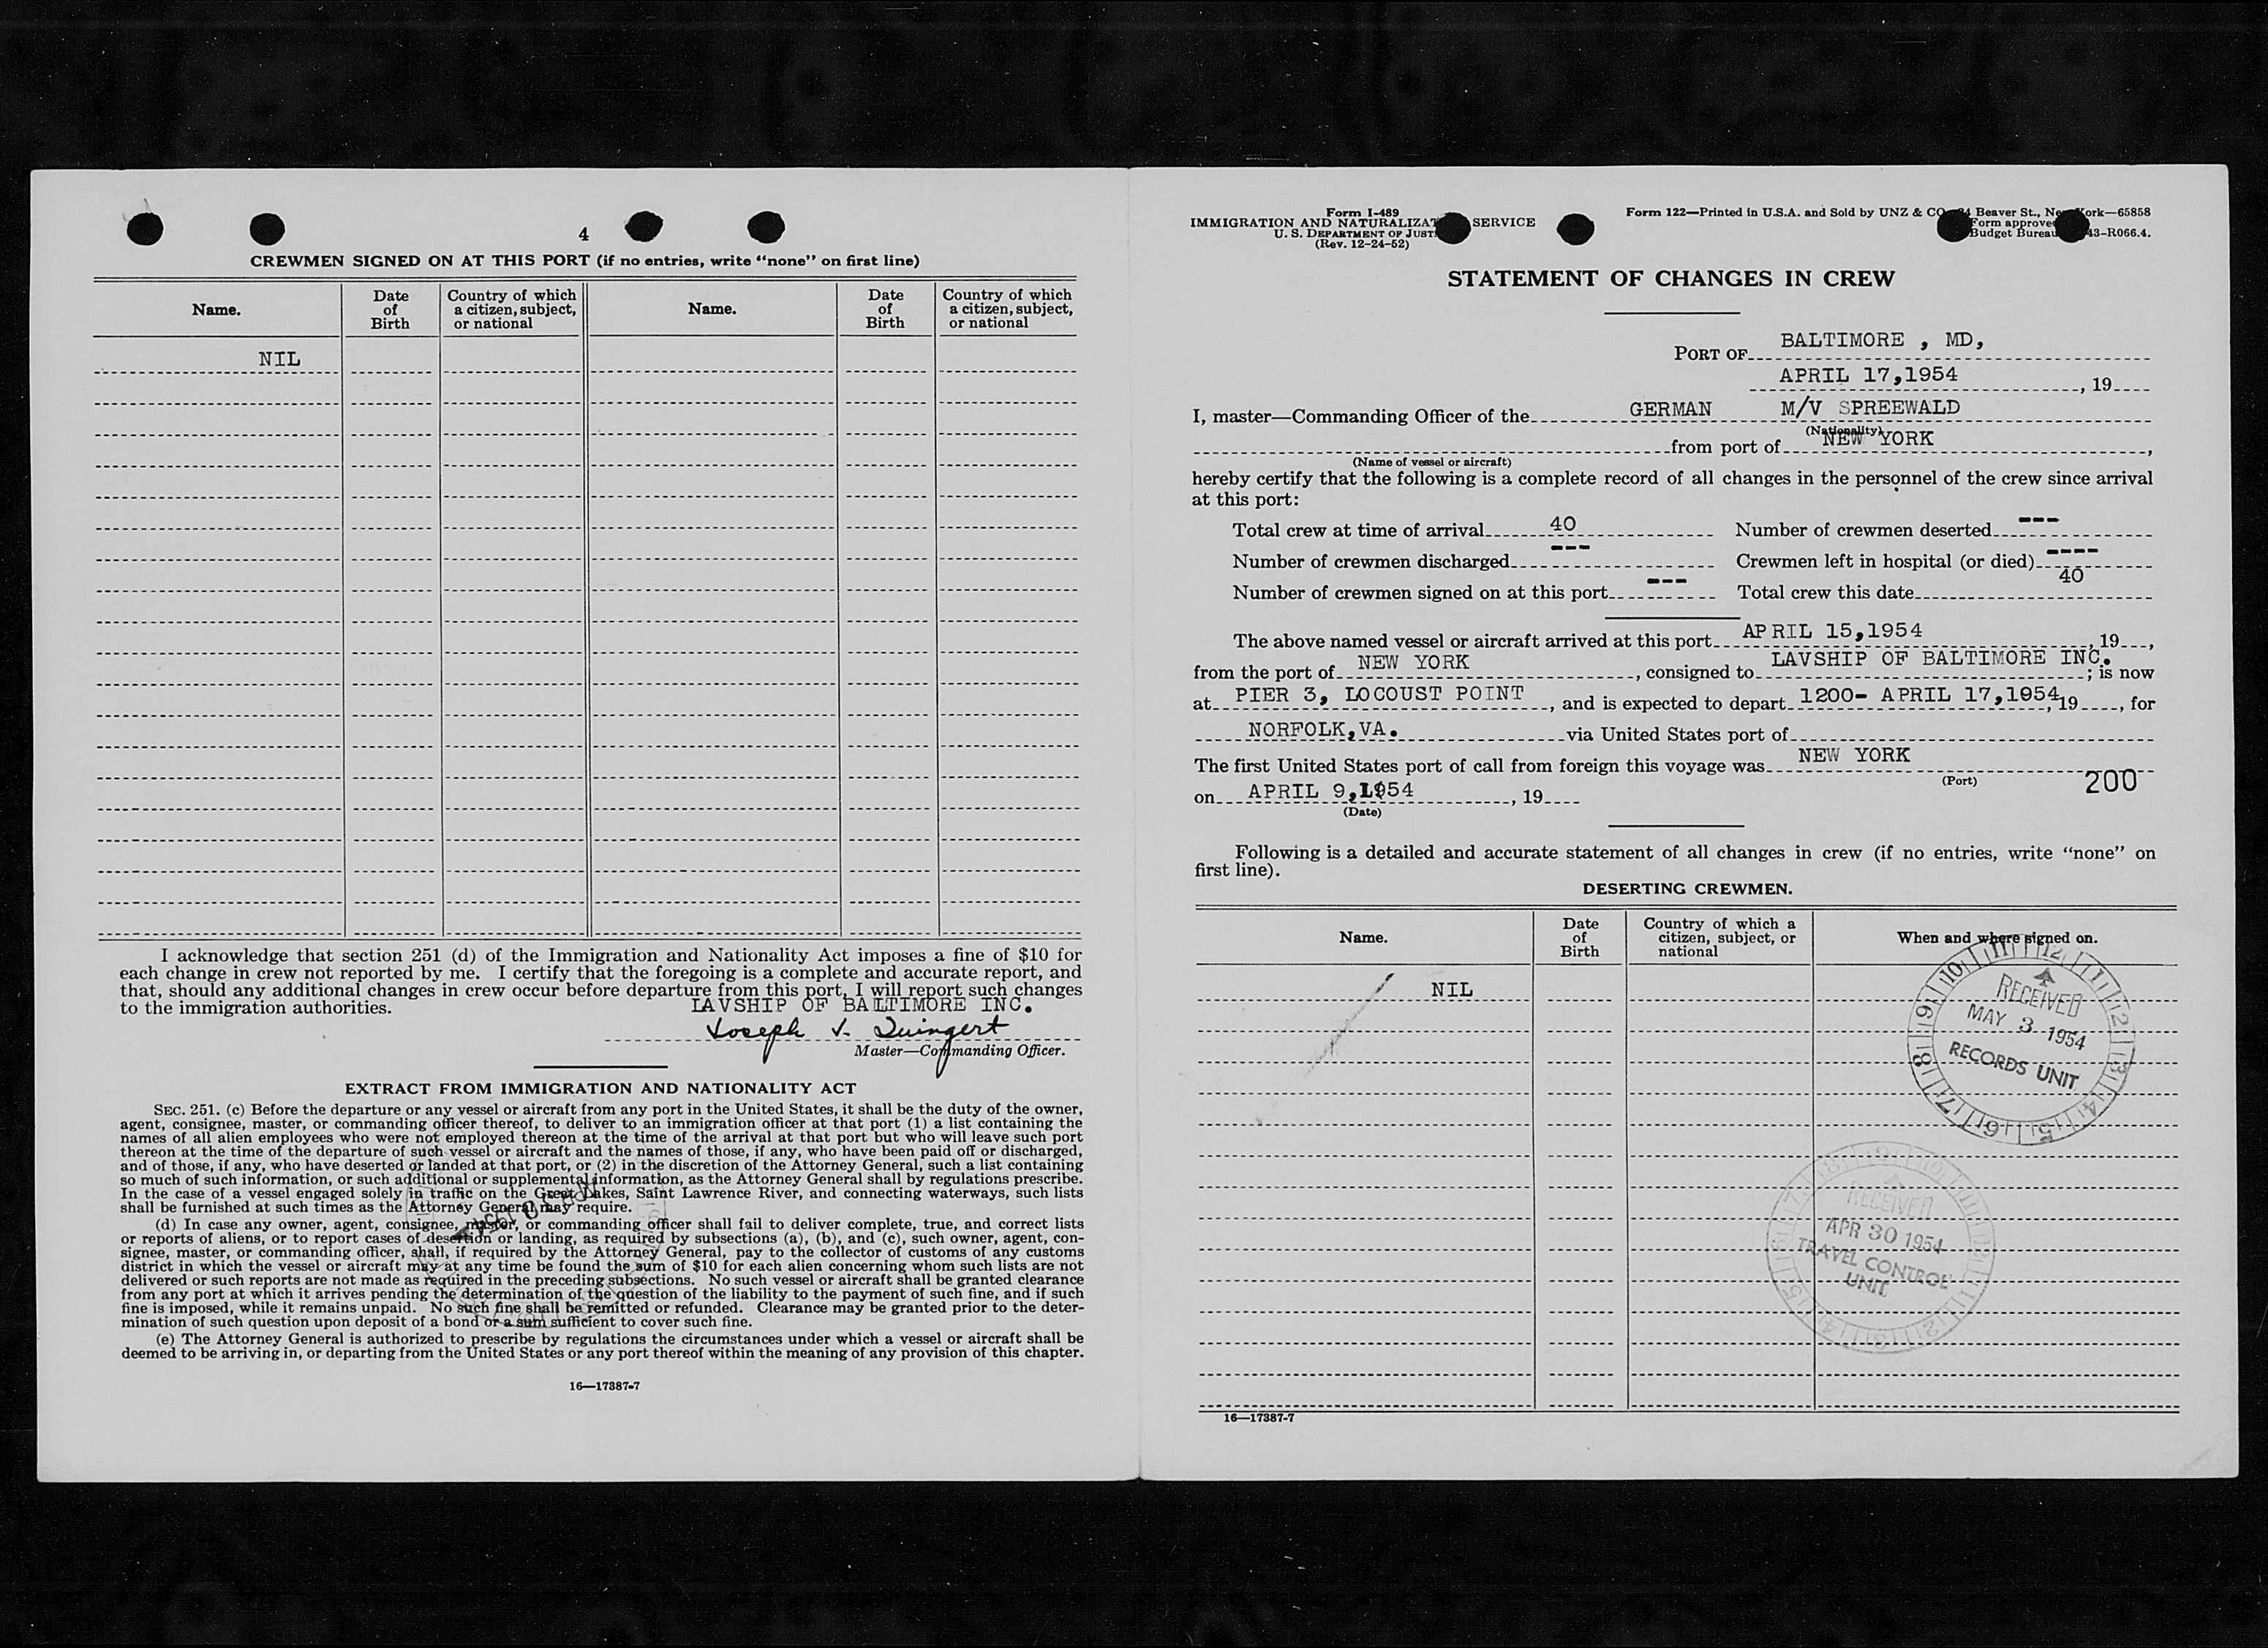 4
CREWMEN SIGNED ON AT THIS PORT (if no entries, write “none” on first line)
Name. Date of Birth Country of which a citizen, subject, or national Name. Date of Birth Country of which a citizen, subject, or national
NIL
I acknowledge that section 251 (d) of the Immigration and Nationality Act imposes a fine of $10 for
each change in crew not reported by me. I certify that the foregoing is a complete and accurate report, and
that, should any additional changes in crew occur before departure from this port, I will report such changes
to the immigration authorities.
LAVSHIP OF BALTIMORE INC.
Joseph J.
Master—Commanding Officer.
EXTRACT FROM IMMIGRATION AND NATIONALITY ACT
SEC. 251. (c) Before the departure or any vessel or aircraft from any port in the United States, it shall be the duty of the owner,
agent, consignee, master, or commanding officer thereof, to deliver to an immigration officer at that port (1) a list containing the
names of all alien employees who were not employed thereon at the time of the arrival at that port but who will leave such port
thereon at the time of the departure of such vessel or aircraft and the names of those, if any, who have been paid off or discharged,
and of those, if any, who have deserted or landed at that port, or (2) in the discretion of the Attorney General, such a list containing
so much of such information, or such additional or supplemental information, as the Attorney General shall by regulations prescribe.
In the case of a vessel engaged solely in traffic on the Great Lakes, Saint Lawrence River, and connecting waterways, such lists
shall be furnished at such times as the Attorney General may require.
(d) In case any owner, agent, consignee, master, or commanding officer shall fail to deliver complete, true, and correct lists
or reports of aliens, or to report cases of desertion or landing, as required by subsections (a), (b), and (c), such owner, agent, con-
signee, master, or commanding officer, shall, if required by the Attorney General, pay to the collector of customs of any customs
district in which the vessel or aircraft may at any time be found the sum of $10 for each alien concerning whom such lists are not
delivered or such reports are not made as required in the preceding subsections. No such vessel or aircraft shall be granted clearance
from any port at which it arrives pending the determination of the question of the liability to the payment of such fine, and if such
fine is imposed, while it remains unpaid. No such fine shall be remitted or refunded. Clearance may be granted prior to the deter-
mination of such question upon deposit of a bond or a sum sufficient to cover such fine.
(e) The Attorney General is authorized to prescribe by regulations the circumstances under which a vessel or aircraft shall be
deemed to be arriving in, or departing from the United States or any port thereof within the meaning of any provision of this chapter.
16—17387-7
Form I-489
IMMIGRATION AND NATURALIZAT SERVICE
U. S. DEPARTMENT OF JUST
(Rev. 12-24-52)
Form 122—Printed in U.S.A. and Sold by UNZ & CO Beaver St., New York—65858
Form approved
Budget Bureau 43-R066.4.
STATEMENT OF CHANGES IN CREW
PORT OF BALTIMORE , MD,
APRIL 17,1954 , 19
I, master—Commanding Officer of the GERMAN M/V SPREEWALD
(Nationality)
from port of NEW YORK ,
(Name of vessel or aircraft)
hereby certify that the following is a complete record of all changes in the personnel of the crew since arrival
at this port:
Total crew at time of arrival 40 Number of crewmen deserted ---
Number of crewmen discharged --- Crewmen left in hospital (or died) ----
Number of crewmen signed on at this port --- Total crew this date 40
The above named vessel or aircraft arrived at this port APRIL 15,1954 , 19 ,
from the port of NEW YORK , consigned to LAVSHIP OF BALTIMORE INC. ; is now
at PIER 3, LOCOUST POINT , and is expected to depart 1200- APRIL 17,1954 , 19 , for
NORFOLK,VA. via United States port of
The first United States port of call from foreign this voyage was NEW YORK
(Port) 200
on APRIL 9,1954 , 19
(Date)
Following is a detailed and accurate statement of all changes in crew (if no entries, write “none” on
first line).
DESERTING CREWMEN.
Name. Date of Birth Country of which a citizen, subject, or national When and where signed on.
NIL
RECEIVED
MAY 3 1954
RECORDS UNIT
RECEIVED
APR 30 1954
TRAVEL CONTROL
UNIT
16—17387-7